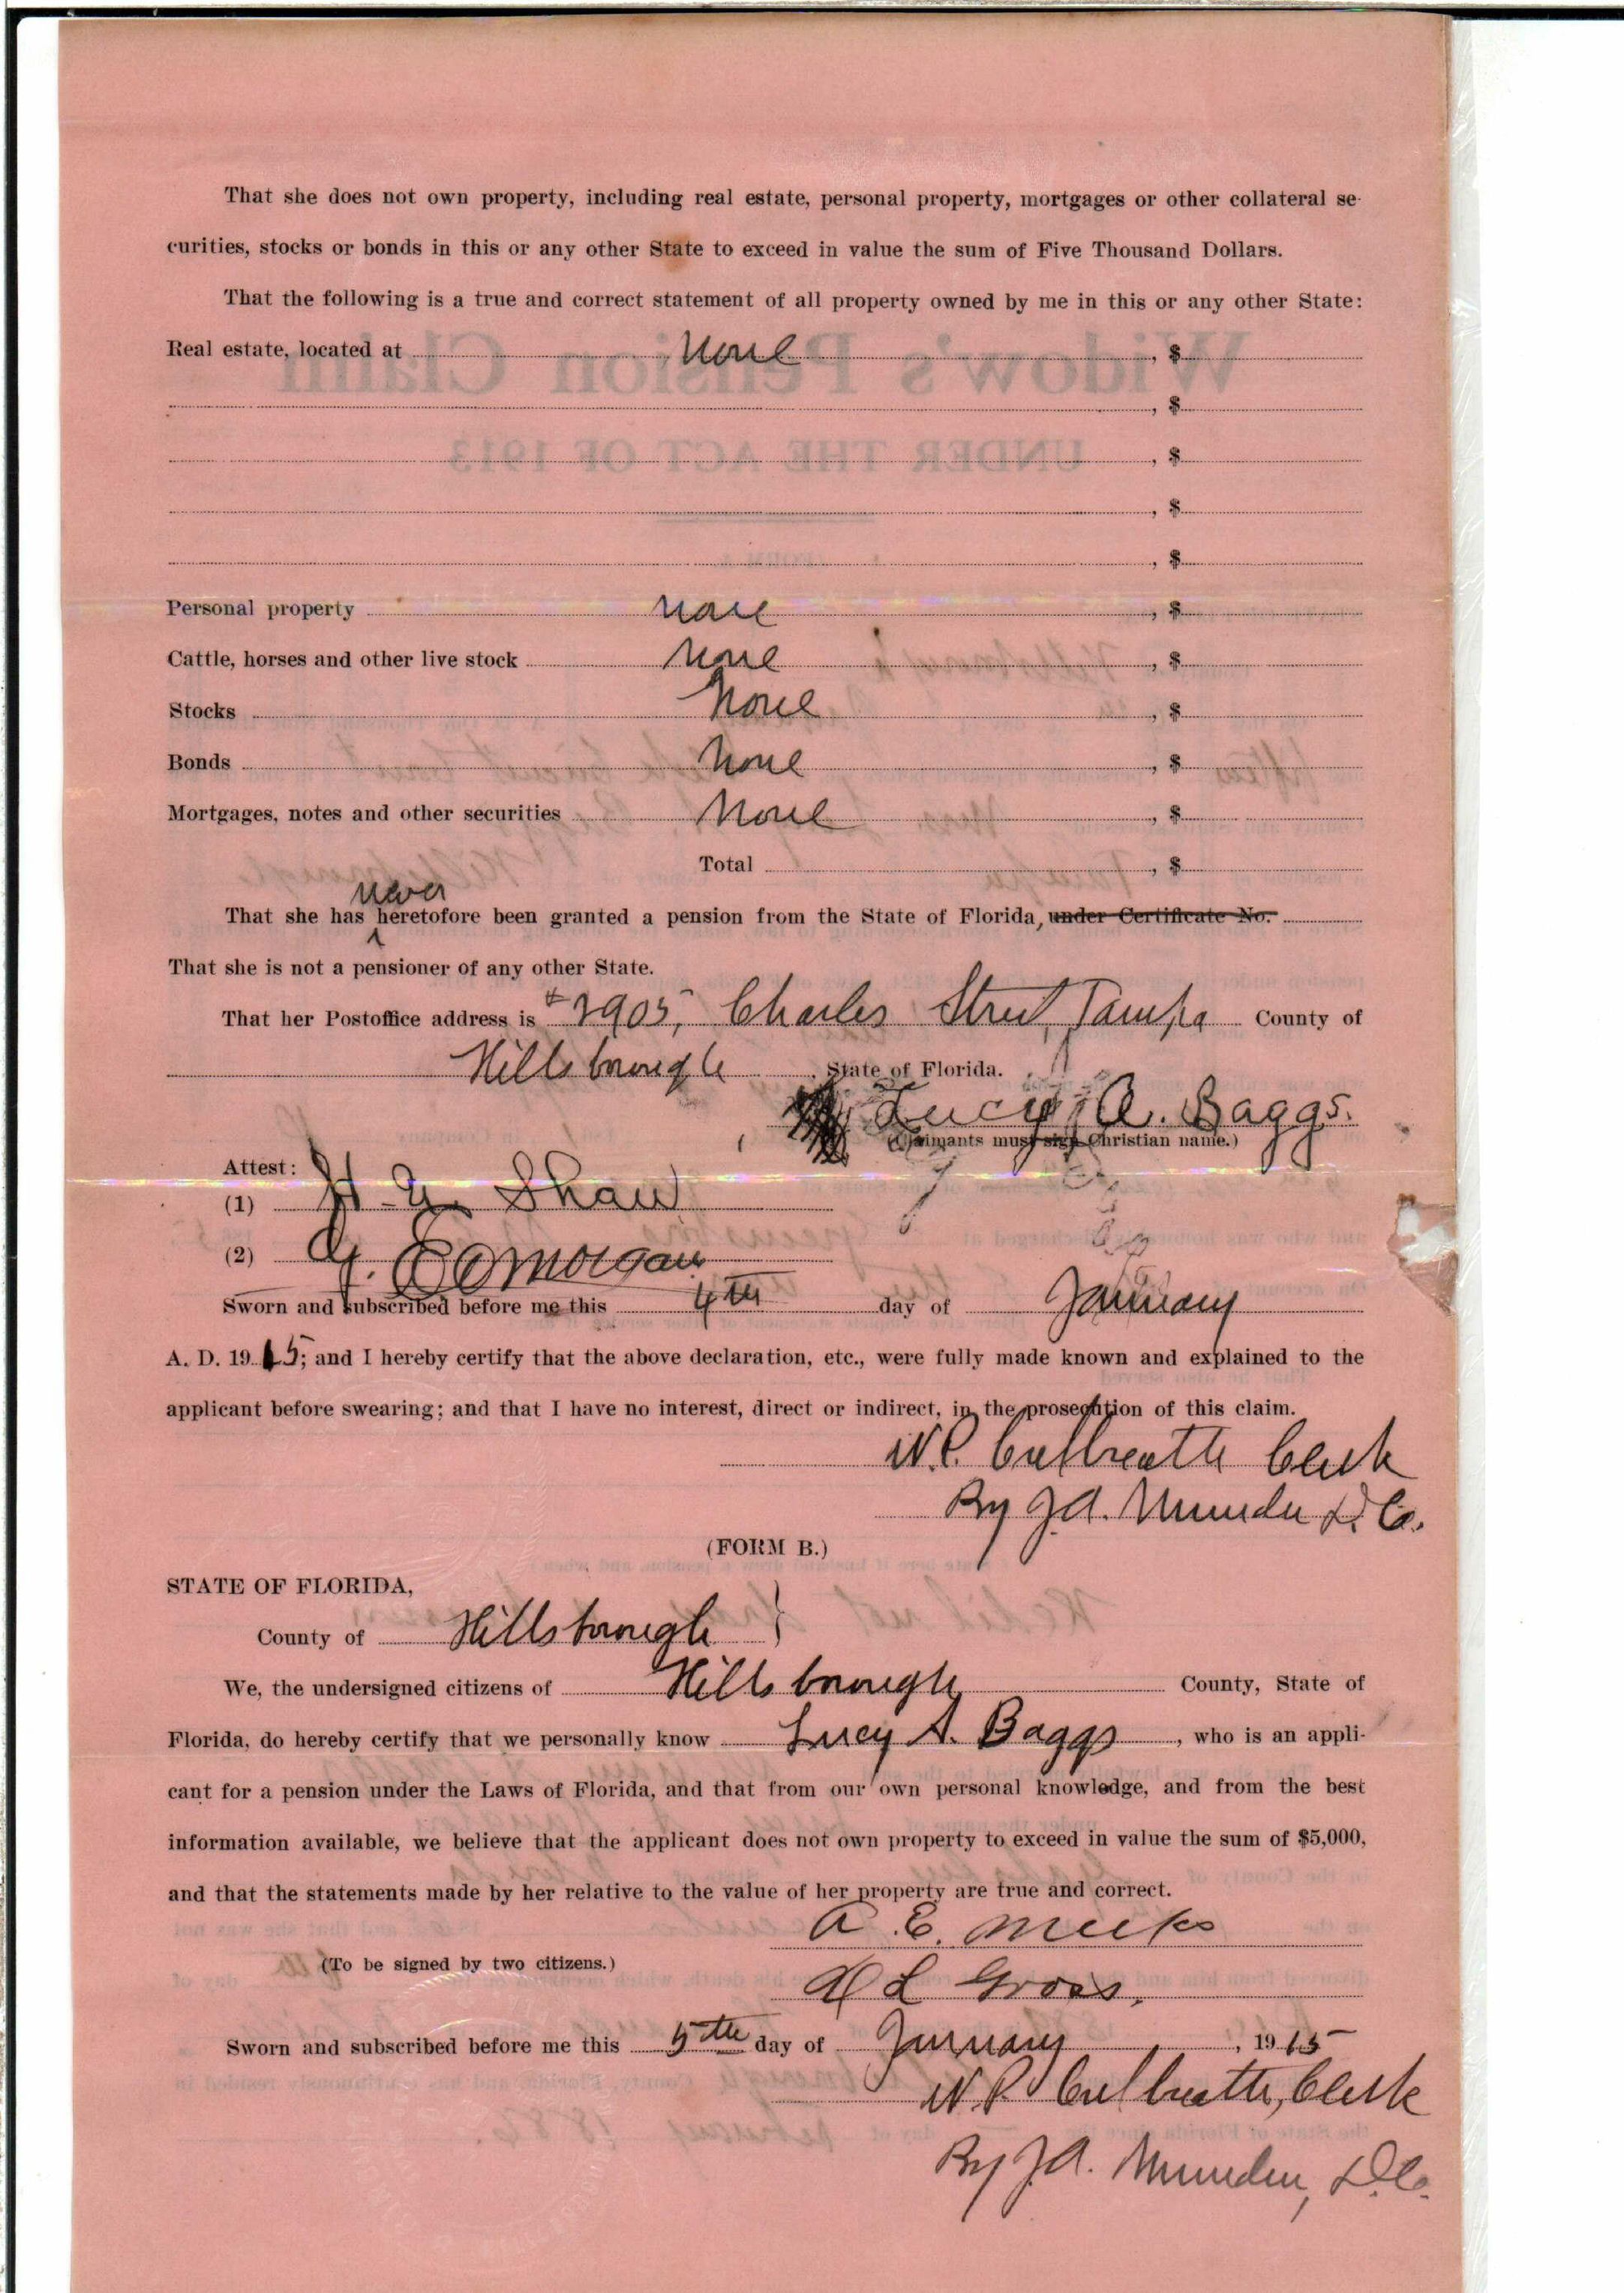 That she does not own property, including real estate, personal property, mortgages or other collateral se-
curities, stocks or bonds in this or any other State to exceed in value the sum of Five Thousand Dollars.
That the following is a true and correct statement of all property owned by me in this or any other State:
Real estate, located at None , $
, $
, $
, $
, $
Personal property None , $
Cattle, horses and other live stock None , $
Stocks None , $
Bonds None , $
Mortgages, notes and other securities None , $
Total , $
never
That she has heretofore been granted a pension from the State of Florida, under Certificate No.
That she is not a pensioner of any other State.
That her Postoffice address is # 2905, Charles Street, Tampa County of
Hillsborough , State of Florida.
Lucy A. Baggs.
(Claimants must sign Christian name.)
Attest:
(1) Shaw
(2) Morgan
Sworn and subscribed before me this 4th day of January
A. D. 1915; and I hereby certify that the above declaration, etc., were fully made known and explained to the
applicant before swearing; and that I have no interest, direct or indirect, in the prosecution of this claim.
W. P. Culbreath Clerk
By J.A. Munden D.C.
(FORM B.)
STATE OF FLORIDA,
County of Hillsborough }
We, the undersigned citizens of Hillsborough County, State of
Florida, do hereby certify that we personally know Lucy A. Baggs , who is an appli-
cant for a pension under the Laws of Florida, and that from our own personal knowledge, and from the best
information available, we believe that the applicant does not own property to exceed in value the sum of $5,000,
and that the statements made by her relative to the value of her property are true and correct.
A. E. Meeks
(To be signed by two citizens.)
L Gross.
Sworn and subscribed before me this 5th day of January , 1915
W. P. Culbreath, Clerk
By J.A. Munden, D.C.